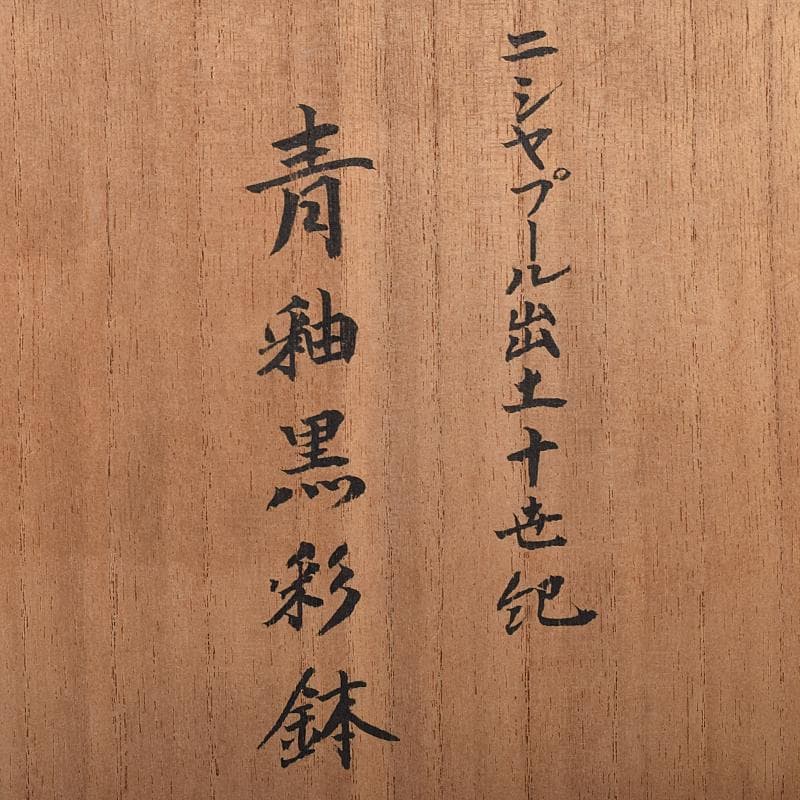 ニシャプール出土十世紀
青釉黒彩鉢